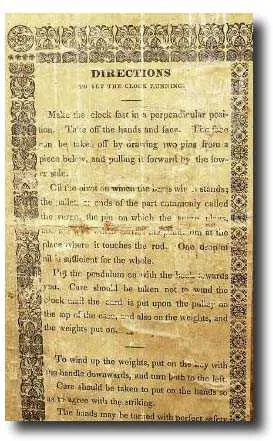 DIRECTIONS
TO SET THE CLOCK RUNNING.
Make the clock fast in a perpendicular posi-
tion. Take off the hands and face. The face
can be taken off by drawing two pins from a
piece below, and pulling it forward by the low-
er side.
Oil the pivot on when the verge stands;
the pallets or ends of the part commonly called
the verge, the pin on which the verge plays,
at the
place where it touches the rod. One drop of
oil is sufficient for the whole.
Put the pendulum on with the towards
you. Care should be taken not to wind the
clock until the cord is put upon the pulley on
the top of the case, and also on the weights, and
the weights put on.
To wind up the weights, put on the key with
the handle downwards, and turn both to the left.
Care should be taken to put on the hands so
as to agree with the striking.
The hands may be turned with perfect safety